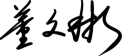 董文彬